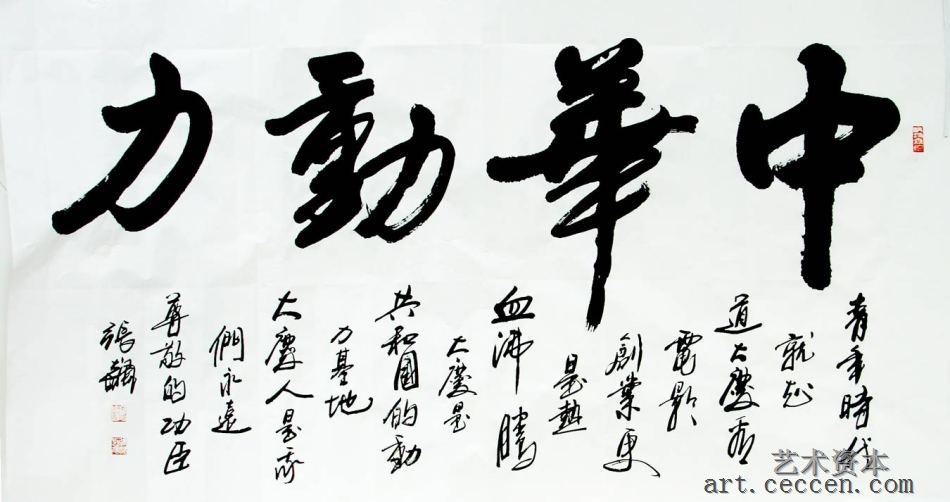 中華動力
青年時代
就知
道大慶看
電影
創業更
是熱
血沸騰
大慶是
共和國的動
力基地
大慶人是我
們永遠
尊敬的功臣
張
艺术资本
art.ceccen.com